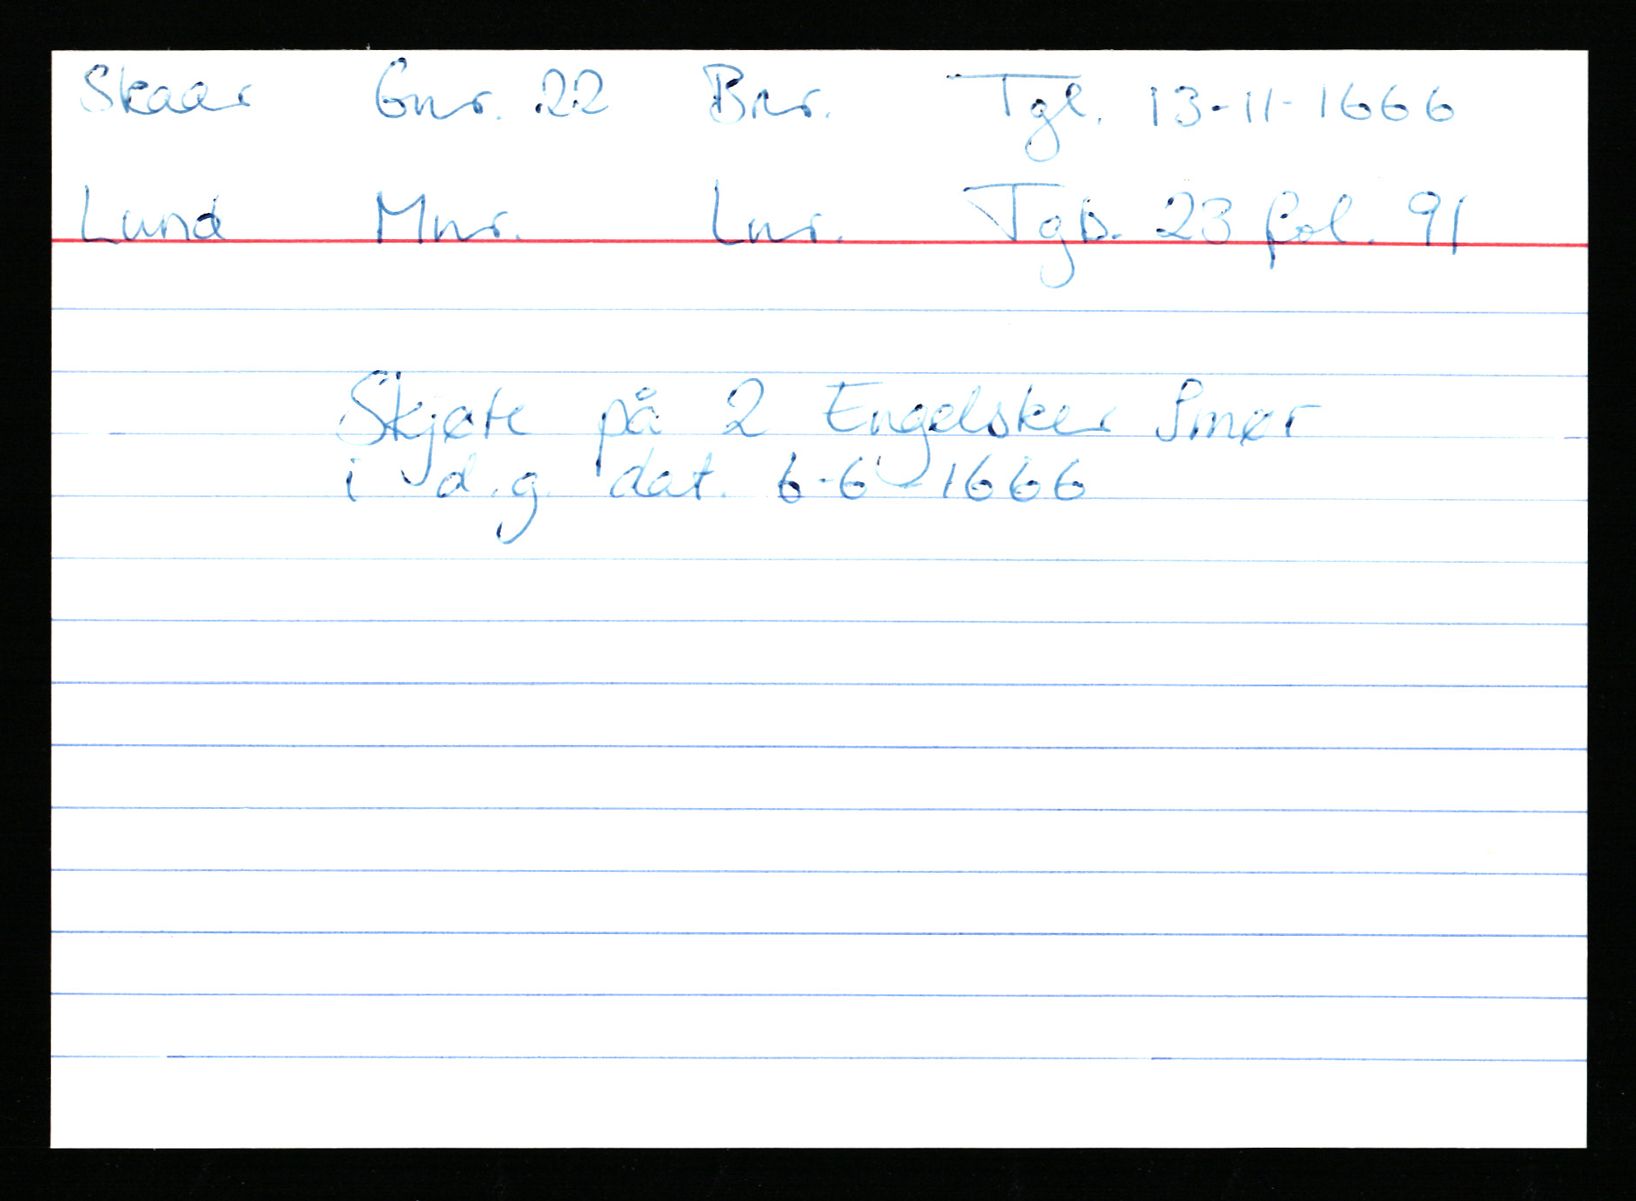 Skaar Gnr. 22 Bnr. Tgl. 13-11-1666
Lund Mnr. Lnr. Tgb. 23 fol. 91
Skjøte på 2 Engelsker Smør
i d.g. dat. 6-6-1666